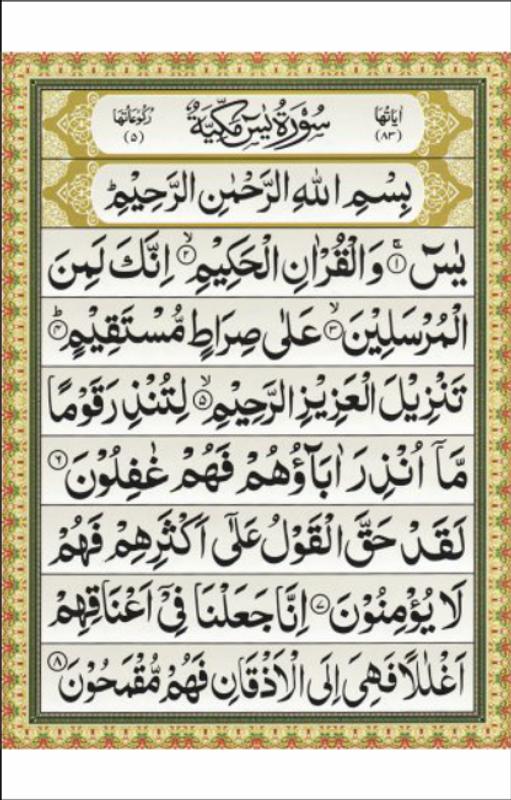 اٰيَاتُهَا (٨٣) سُوْرَةُ يٰسٓ مَكِّيَّةٌ رُكُوْعَاتُهَا (٥)
بِسْمِ اللهِ الرَّحْمٰنِ الرَّحِيْمِ ط
يٰسٓ ۚ ① وَالْقُرْاٰنِ الْحَكِيْمِ ۙ ② اِنَّكَ لَمِنَ
الْمُرْسَلِيْنَ ۙ ③ عَلٰى صِرَاطٍ مُّسْتَقِيْمٍ ط ④
تَنْزِيْلَ الْعَزِيْزِ الرَّحِيْمِ ۙ ⑤ لِتُنْذِرَ قَوْمًا
مَّآ اُنْذِرَ اٰبَآؤُهُمْ فَهُمْ غٰفِلُوْنَ ⑥
لَقَدْ حَقَّ الْقَوْلُ عَلٰٓى اَكْثَرِهِمْ فَهُمْ
لَا يُؤْمِنُوْنَ ⑦ اِنَّا جَعَلْنَا فِيْٓ اَعْنَاقِهِمْ
اَغْلٰلًا فَهِيَ اِلَى الْاَذْقَانِ فَهُمْ مُّقْمَحُوْنَ ⑧